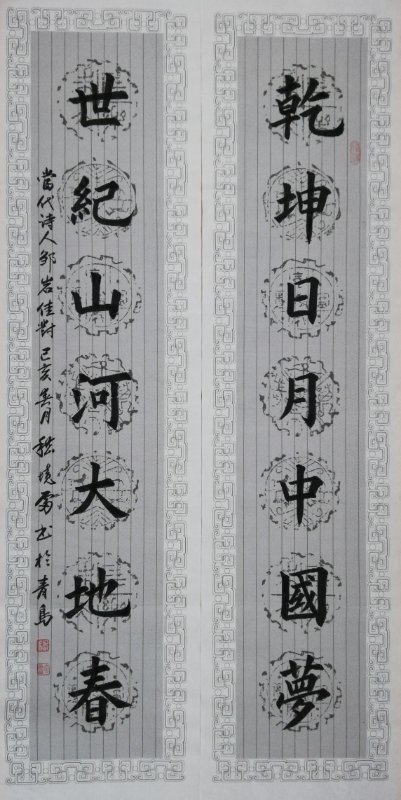 乾坤日月中國夢
世紀山河大地春
當代诗人邹岩佳對己亥春月程晓雷书於青島